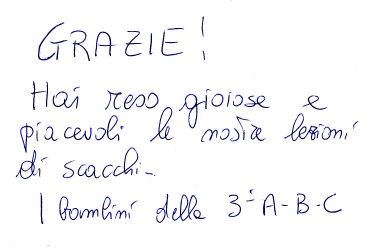 GRAZIE!
Hai reso gioiose e
piacevoli le nostre lezioni
di scacchi-
I bambini delle 3ᵉ A-B-C